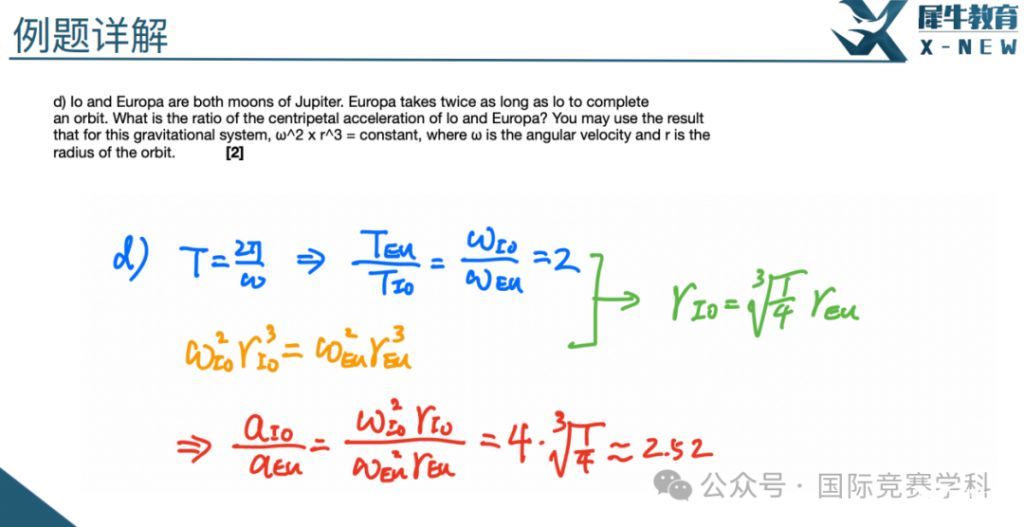 例题详解
犀牛教育
X-NEW
d) Io and Europa are both moons of Jupiter. Europa takes twice as long as Io to complete
an orbit. What is the ratio of the centripetal acceleration of Io and Europa? You may use the result
that for this gravitational system, ω^2 x r^3 = constant, where ω is the angular velocity and r is the
radius of the orbit. [2]
d) T = 2π/ω ⇒ T_EU/T_IO = ω_IO/ω_EU = 2
→ r_IO = ∛(1/4) r_EU
ω_IO² r_IO³ = ω_EU² r_EU³
⇒ a_IO/a_EU = ω_IO² r_IO/ω_EU² r_EU = 4·∛(1/4) ≈ 2.52
公众号·国际竞赛学科